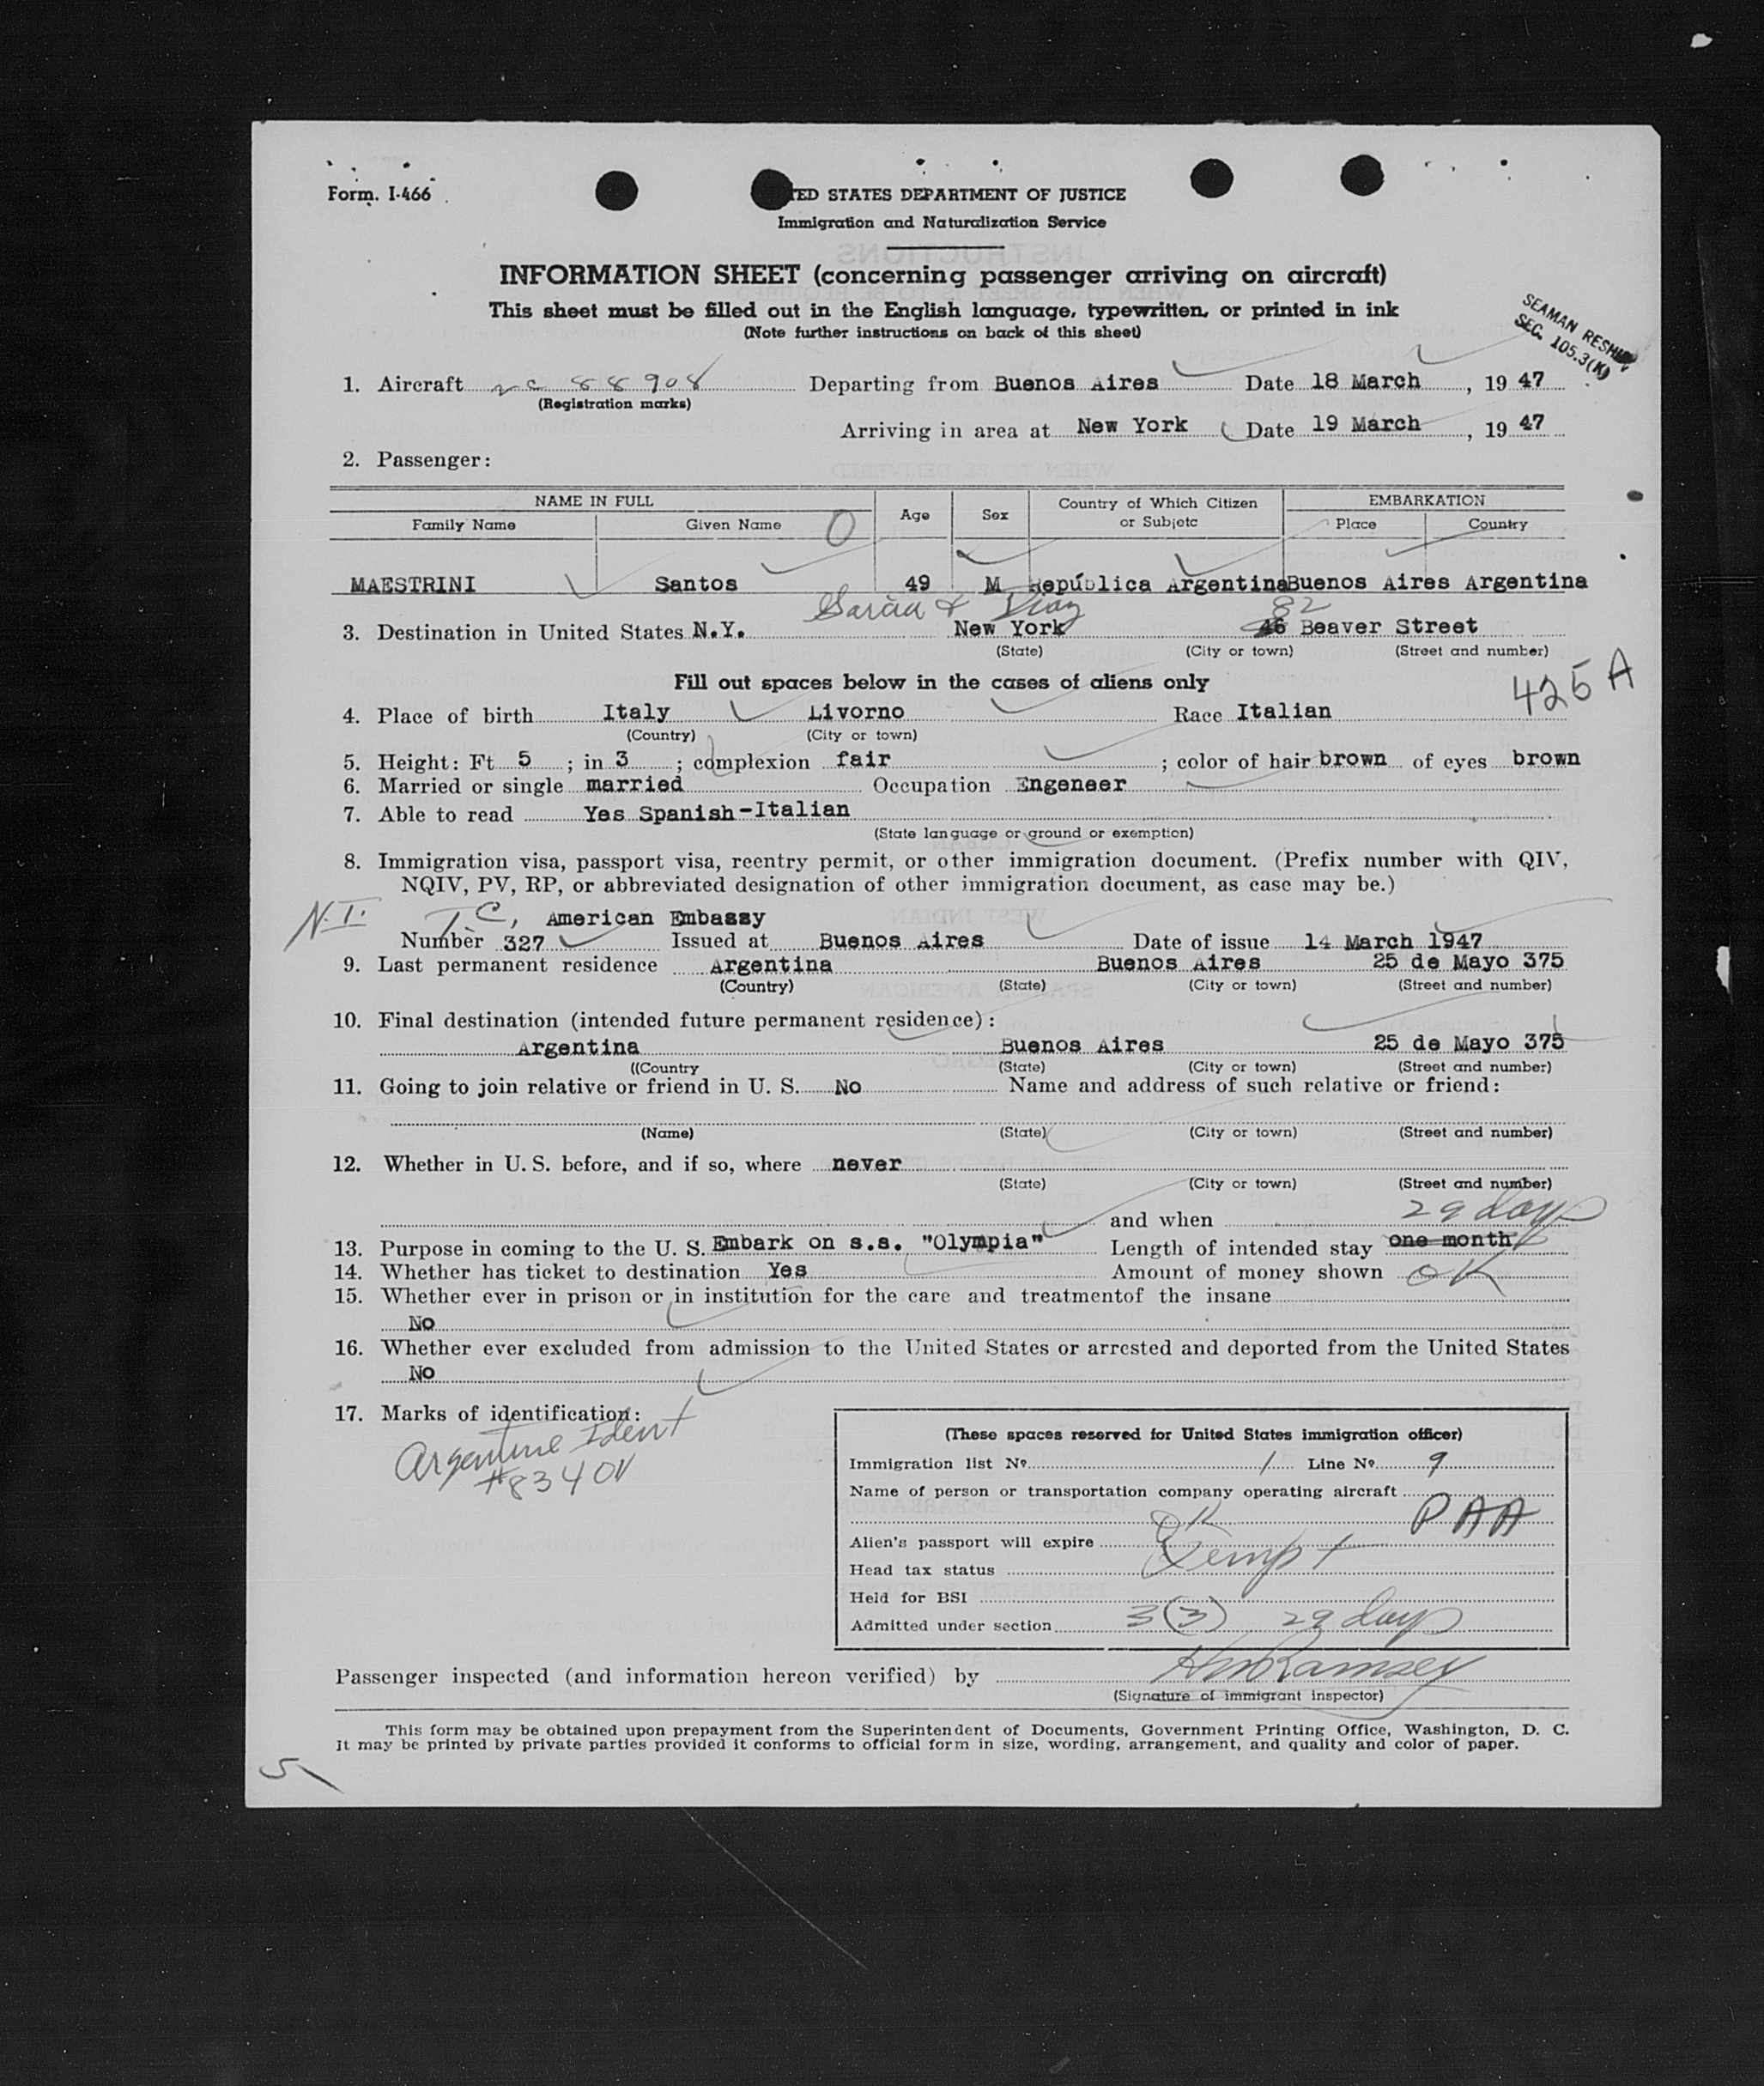 Form. I-466
TED STATES DEPARTMENT OF JUSTICE
Immigration and Naturalization Service
INFORMATION SHEET (concerning passenger arriving on aircraft)
This sheet must be filled out in the English language, typewritten, or printed in ink
(Note further instructions on back of this sheet)
SEAMAN RESHIP
SEC. 105.3(K)
1. Aircraft nc 88908 Departing from Buenos Aires Date 18 March, 19 47
(Registration marks)
Arriving in area at New York Date 19 March, 19 47
2. Passenger:
NAME IN FULL Age Sex Country of Which Citizen or Subjetc EMBARKATION
Family Name Given Name O Place Country
MAESTRINI Santos 49 M República Argentina Buenos Aires Argentina
Garcia & Diaz 82
3. Destination in United States N.Y. New York 46 Beaver Street
(State) (City or town) (Street and number)
Fill out spaces below in the cases of aliens only
425 A
4. Place of birth Italy Livorno Race Italian
(Country) (City or town)
5. Height: Ft 5 ; in 3 ; complexion fair ; color of hair brown of eyes brown
6. Married or single married Occupation Engeneer
7. Able to read Yes Spanish-Italian
(State language or ground or exemption)
8. Immigration visa, passport visa, reentry permit, or other immigration document. (Prefix number with QIV,
NQIV, PV, RP, or abbreviated designation of other immigration document, as case may be.)
N.I. T.C, American Embassy
Number 327 Issued at Buenos Aires Date of issue 14 March 1947
9. Last permanent residence Argentina Buenos Aires 25 de Mayo 375
(Country) (State) (City or town) (Street and number)
10. Final destination (intended future permanent residence):
Argentina Buenos Aires 25 de Mayo 375
((Country (State) (City or town) (Street and number)
11. Going to join relative or friend in U. S. No Name and address of such relative or friend:
(Name) (State) (City or town) (Street and number)
12. Whether in U. S. before, and if so, where never
(State) (City or town) (Street and number)
and when 29 days
13. Purpose in coming to the U. S. Embark on s.s. "Olympia" Length of intended stay one month
14. Whether has ticket to destination Yes Amount of money shown OK
15. Whether ever in prison or in institution for the care and treatmentof the insane
No
16. Whether ever excluded from admission to the United States or arrested and deported from the United States
No
17. Marks of identification:
Argentine Ident
#8340V
(These spaces reserved for United States immigration officer)
Immigration list No 1 Line No 9
Name of person or transportation company operating aircraft
PAA
Alien's passport will expire OK
Head tax status Exempt
Held for BSI
Admitted under section 3(3) 29 days
Passenger inspected (and information hereon verified) by HW Ramsey
(Signature of immigrant inspector)
This form may be obtained upon prepayment from the Superintendent of Documents, Government Printing Office, Washington, D. C.
It may be printed by private parties provided it conforms to official form in size, wording, arrangement, and quality and color of paper.
5